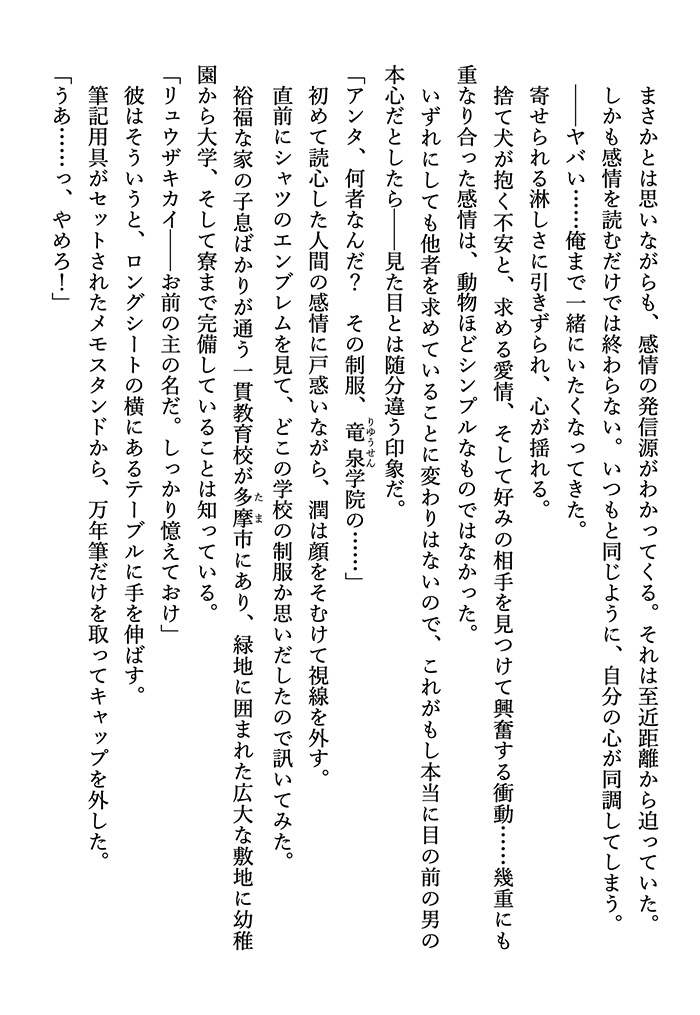 まさかとは思いながらも、感情の発信源がわかってくる。それは至近距離から迫っていた。
しかも感情を読むだけでは終わらない。いつもと同じように、自分の心が同調してしまう。
――ヤバい……俺まで一緒にいたくなってきた。
寄せられる淋しさに引きずられ、心が揺れる。
捨て犬が抱く不安と、求める愛情、そして好みの相手を見つけて興奮する衝動……幾重にも
重なり合った感情は、動物ほどシンプルなものではなかった。
いずれにしても他者を求めていることに変わりはないので、これがもし本当に目の前の男の
本心だとしたら――見た目とは随分違う印象だ。
「アンタ、何者なんだ？　その制服、竜泉学院の……」
初めて読心した人間の感情に戸惑いながら、潤は顔をそむけて視線を外す。
直前にシャツのエンブレムを見て、どこの学校の制服か思いだしたので訊いてみた。
裕福な家の子息ばかりが通う一貫教育校が多摩市にあり、緑地に囲まれた広大な敷地に幼稚
園から大学、そして寮まで完備していることは知っている。
「リュウザキカイ――お前の主の名だ。しっかり憶えておけ」
彼はそういうと、ロングシートの横にあるテーブルに手を伸ばす。
筆記用具がセットされたメモスタンドから、万年筆だけを取ってキャップを外した。
「うあ……っ、やめろ！」